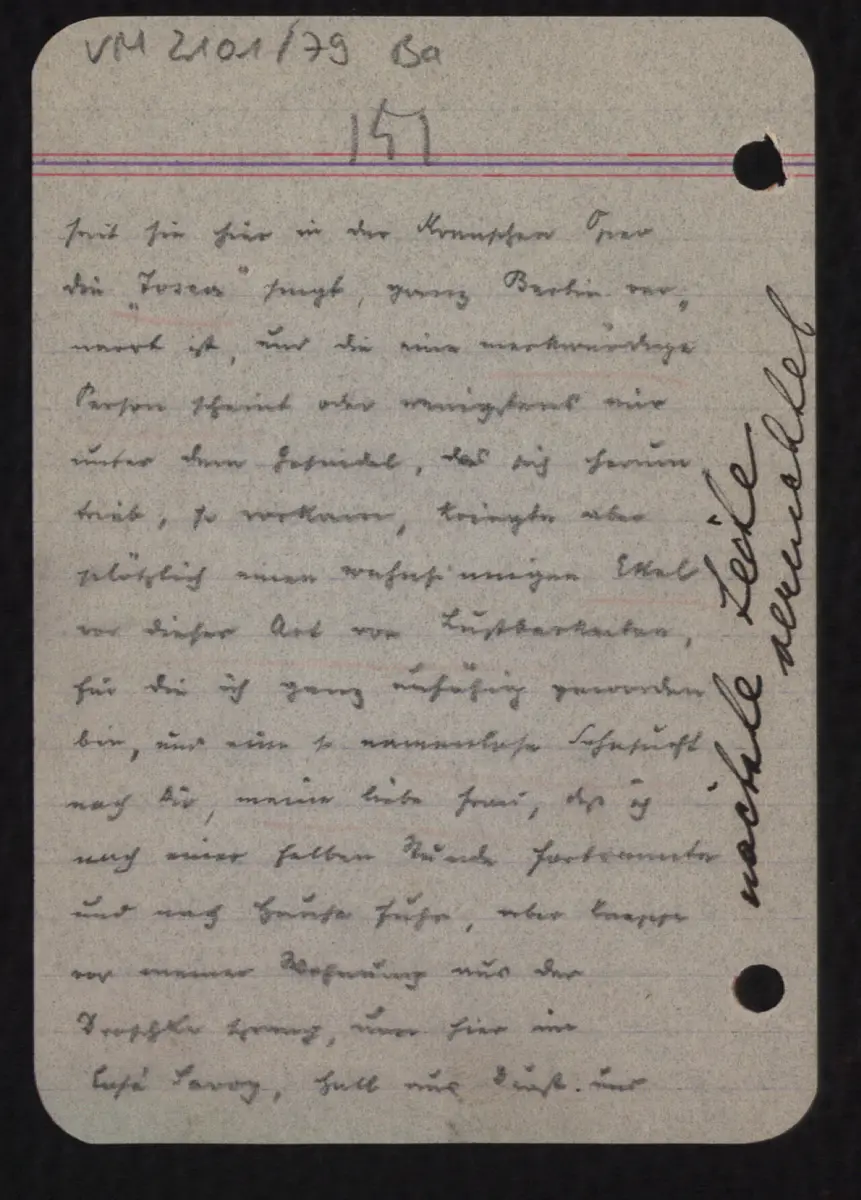 VM 2101/79 Ba
151
seit sie hier in der Kroll'schen Oper
die „Tosca" singt, ganz Berlin ver„
narrt ist, und die eine merkwürdige
Person scheint oder wenigstens mir
unter dem Gesindel, das sich herum
trieb, so vorkam, kriegte aber
plötzlich einen wahnsinnigen Ekel
vor dieser Art von Lustbarkeiten,
für die ich ganz unfähig geworden
bin, und eine so namenlose Sehnsucht
nach Dir, meine liebe Frau, daß ich
nach einer halben Stunde fortrannte
und nach Hause fuhr, aber knapp
vor meiner Wohnung aus der
Droschke sprang, um hier im
Café Savoy, halb aus Durst und
nächste Seite
vernichtet